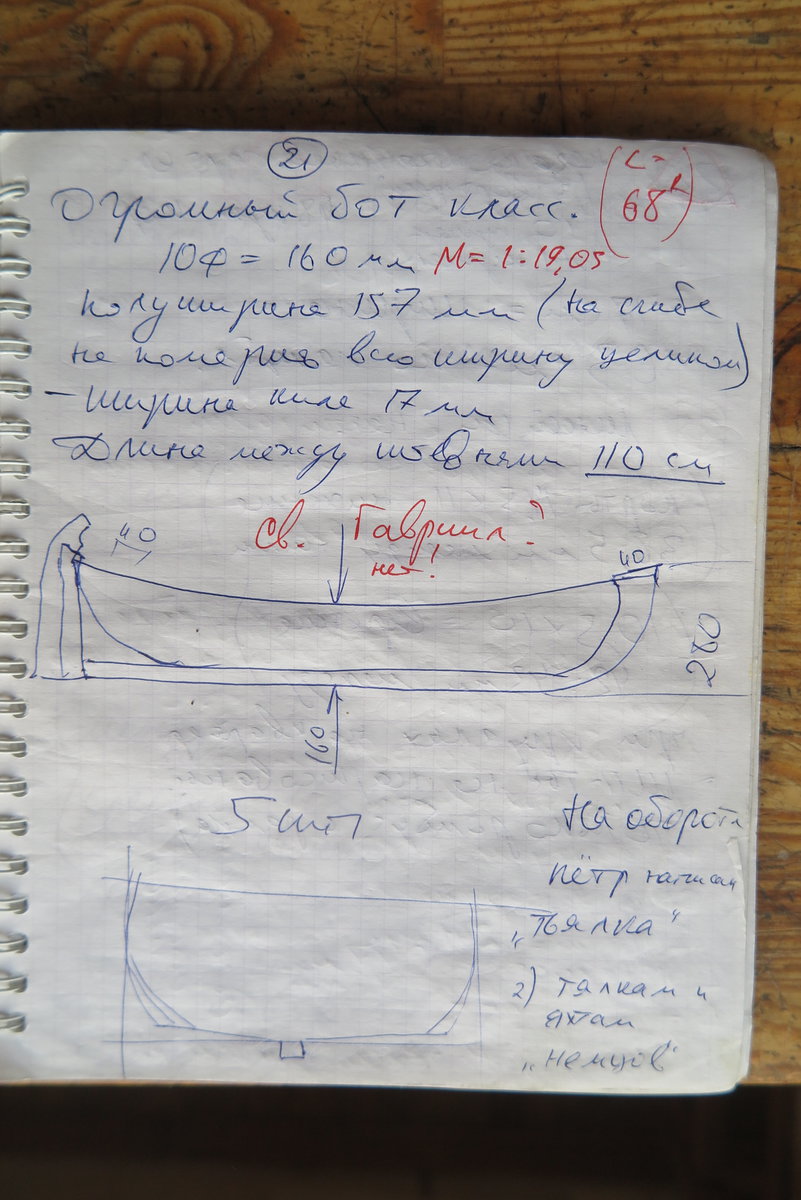 21
Огромный бот класс. (L= 68')
10Ф = 160 мм М= 1:19,05
полуширина 157 мм (на сгибе
не померяв всю ширину целиком)
- ширина киля 17 мм
Длина между штевнями 110 см
40
св. Гавриил?
нет!
40
280
160
5 шт
На обороте
Пётр написал
„Тьялка"
2) тялкам и
яхтам
„немцов"